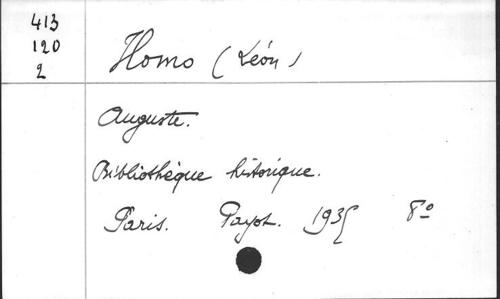 413
120
2
Homo (Léon)
Auguste.
Bibliothèque historique.
Paris. Payot. 1935 8º